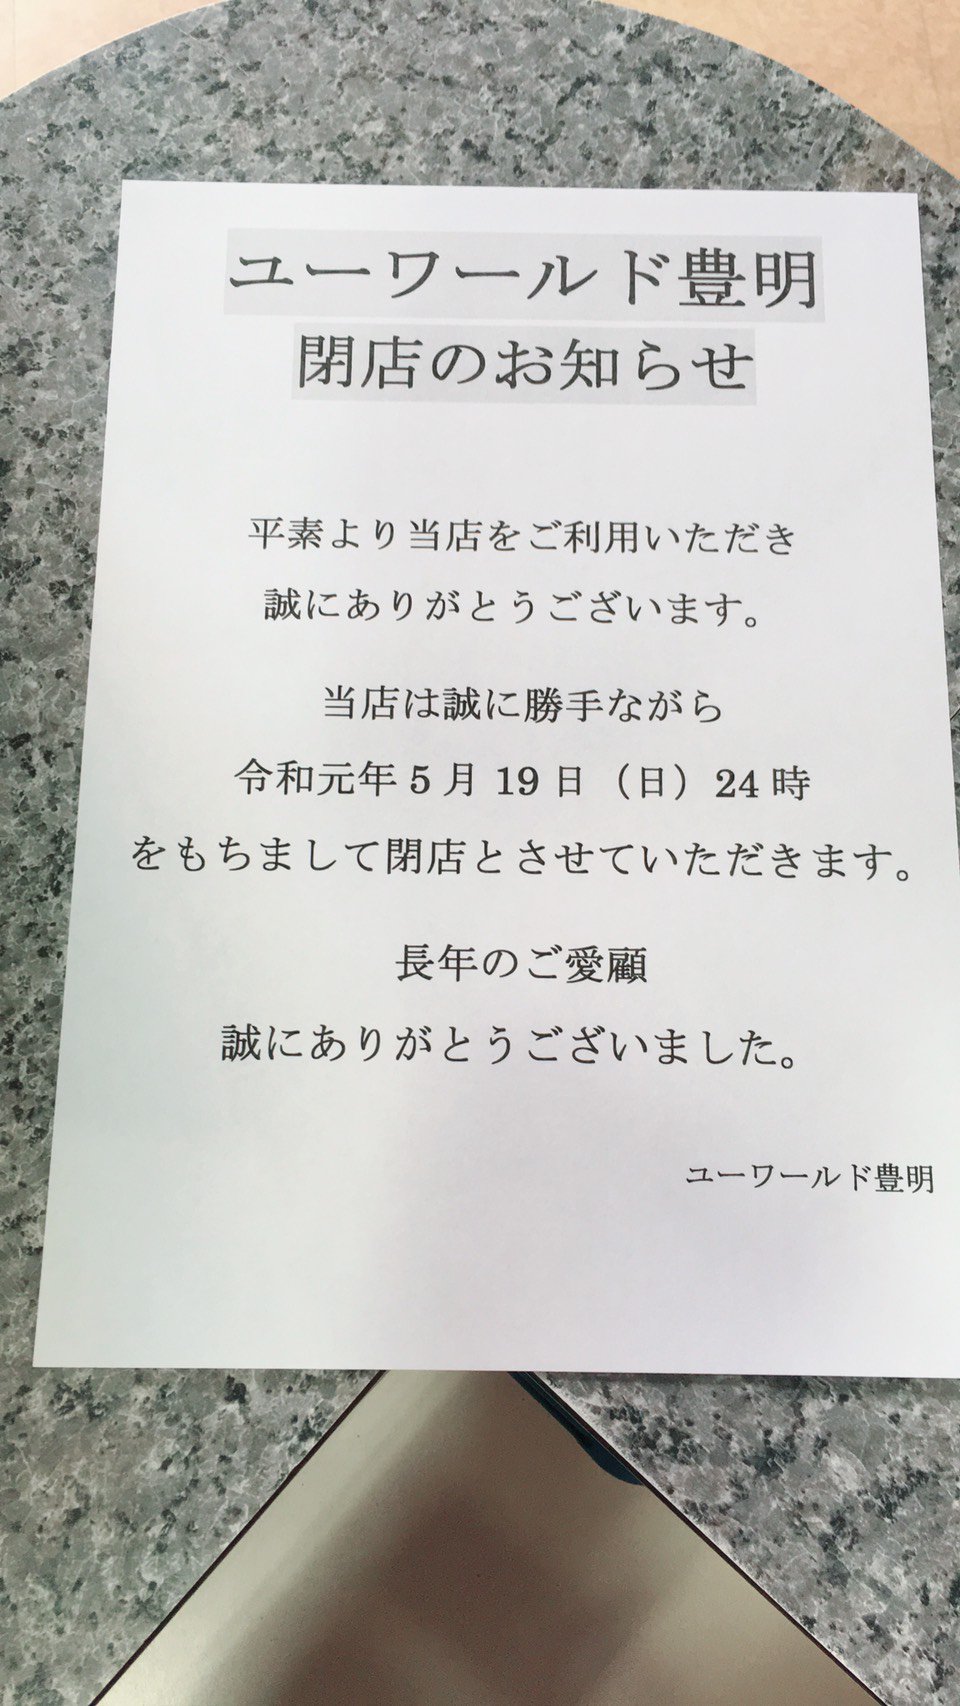 ユーワールド豊明
閉店のお知らせ
平素より当店をご利用いただき
誠にありがとうございます。
当店は誠に勝手ながら
令和元年 5 月 19 日（日）24 時
をもちまして閉店とさせていただきます。
長年のご愛顧
誠にありがとうございました。
ユーワールド豊明